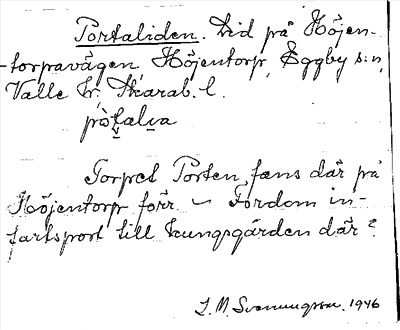 Portaliden. Lid på Höjen-
-torpavägen Höjentorp, Eggby s:n,
Valle hr. Skarab. l.
Torpet Porten fans där på
Höjentorp förr. – Fordom in-
fartsport till kungsgården där?
J. M. Svenungsson. 1946